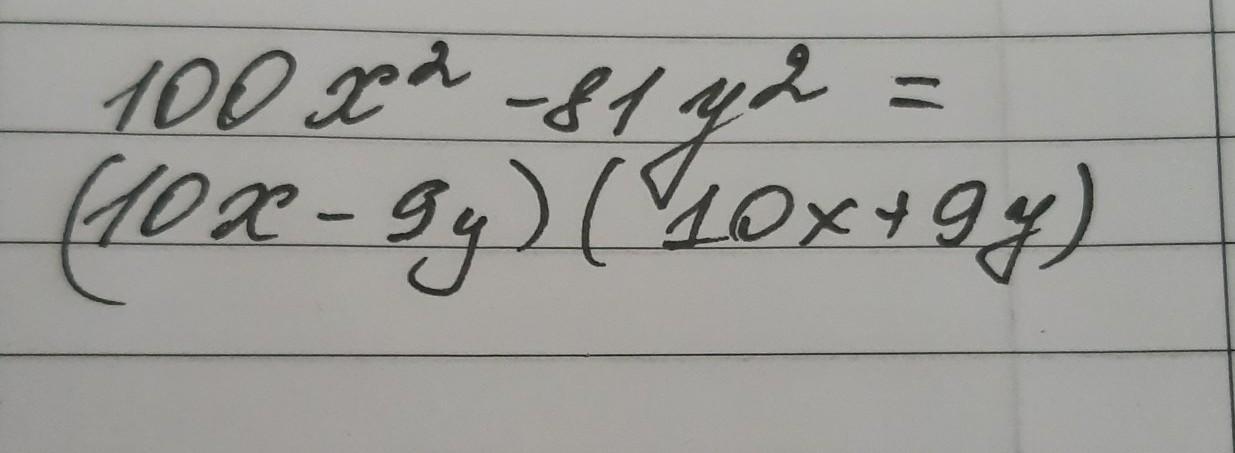 100x² - 81y² =
(10x - 9y)(10x + 9y)